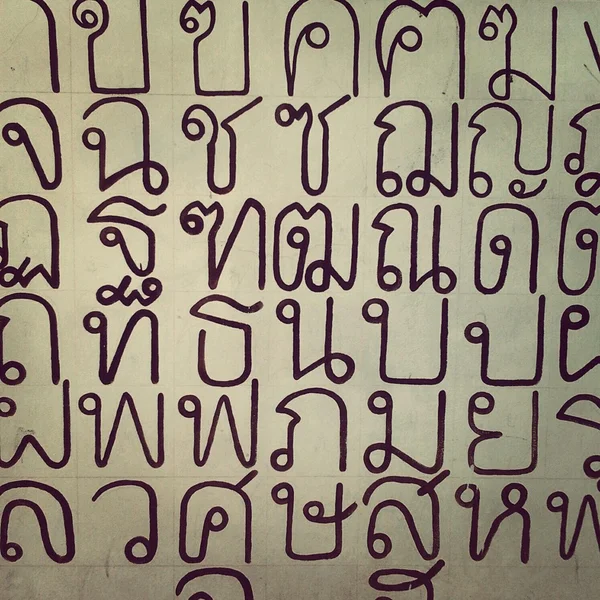 ก ข ฃ ค ฅ ฆ ง
จ ฉ ช ซ ฌ ญ ฎ
ฏ ฐ ฑ ฒ ณ ด ต
ถ ท ธ น บ ป ผ
ฝ พ ฟ ภ ม ย ร
ล ว ศ ษ ส ห ฬ
อ ฮ